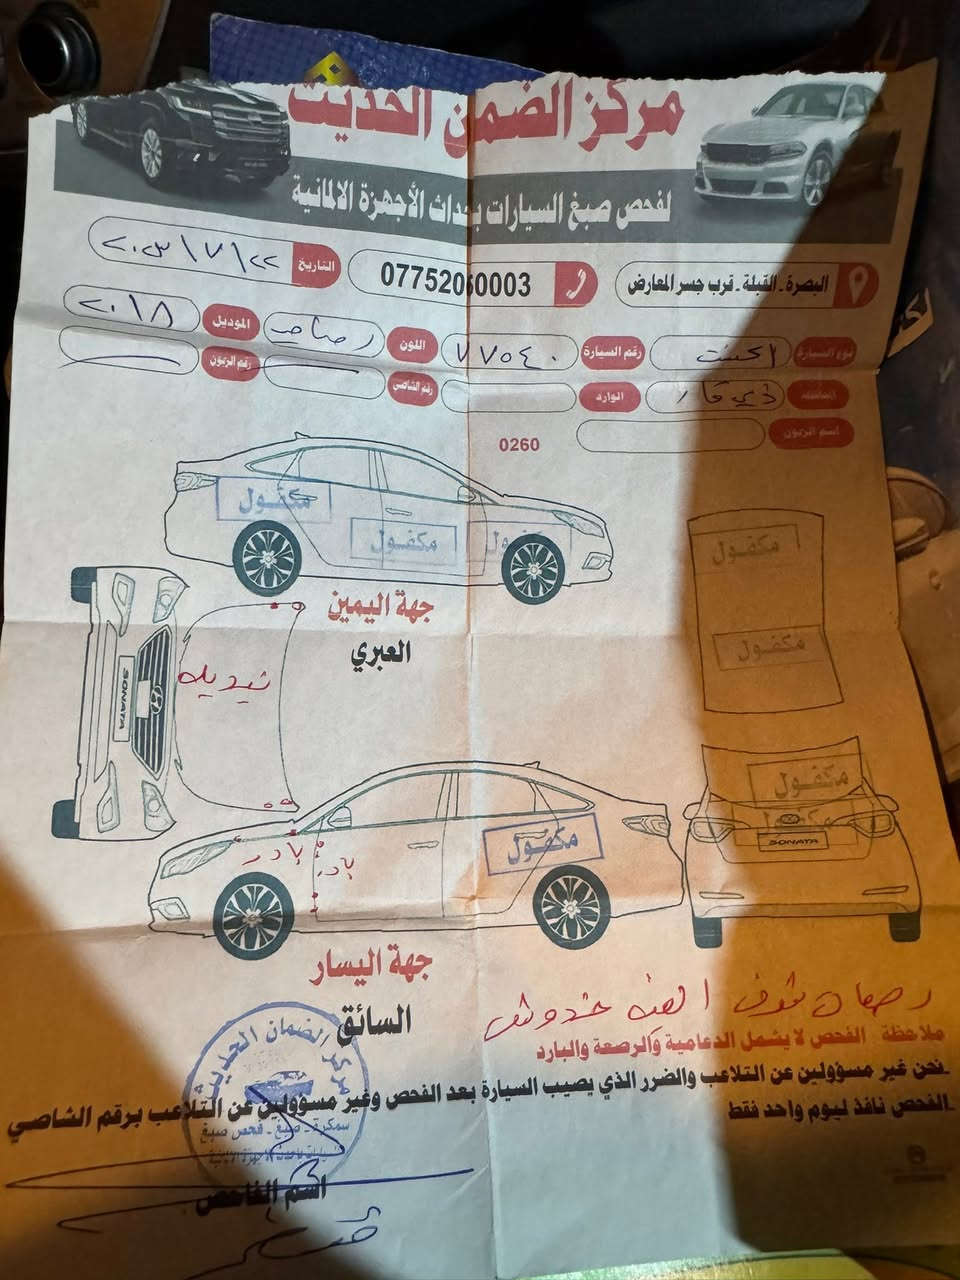 مركز الضمان الحديث
لفحص صبغ السيارات بحداث الأجهزة الالمانية
البصرة - القبلة - قرب جسر المعارض
07752060003
التاريخ
نوع السيارة
رقم السيارة ٧٧٥٤٠
اللون رصاصي
الموديل ٢٠١٨
ذي قار
الوارد
رقم الشاصي
رقم الزبون
اسم الزبون
0260
مكفول
مكفول
مكفول
جهة اليمين
العبري
مكفول
مكفول
تبديل
SONATA
مكفول
مكفول
SONATA
مكفول
بارد
بارد
جهة اليسار
السائق
ملاحظة الفحص لا يشمل الدعامية والرصعة والبارد
-نحن غير مسؤولين عن التلاعب والضرر الذي يصيب السيارة بعد الفحص وغير مسؤولين عن التلاعب برقم الشاصي
-الفحص نافذ ليوم واحد فقط
مركز الضمان الحديث
سمكرة - صبغ - فحص صبغ
اسم الفاحص